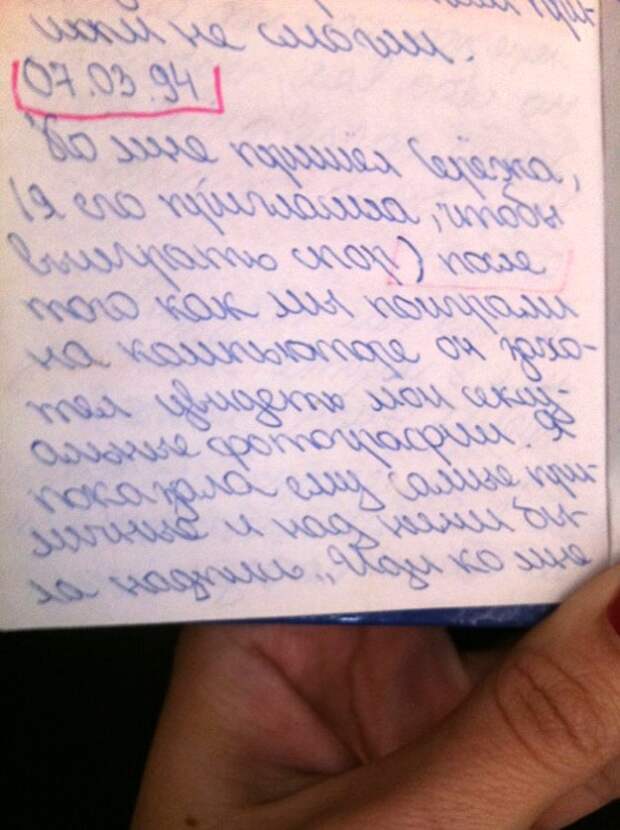 при-
жки не смогли.
07.03.94
Ко мне пришёл Серёжа,
(я его пригласила, чтобы
выиграть спор) после
того как мы поиграли
на компьютере он захо-
тел увидеть мои сексу-
альные фотографии. Я
показала ему самые при-
личные и над ними бы-
ла надпись „Иди ко мне